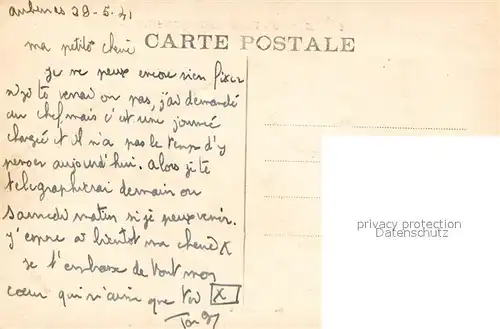 Aubenas 29-5-41
ma petite cherie
CARTE POSTALE
je ne peux encore rien fixer
si je te verrai ou pas, j'ai demandé
au chef mais c'est une journée
chargée et il n'a pas le temps d'y
penser aujourd'hui. Alors je te
telegraphierai demain ou
samedi matin si je peux venir.
j'espere a bientot ma cherie X
je t'embrasse de tout mon
coeur qui n'aime que toi X
privacy protection
Datenschutz